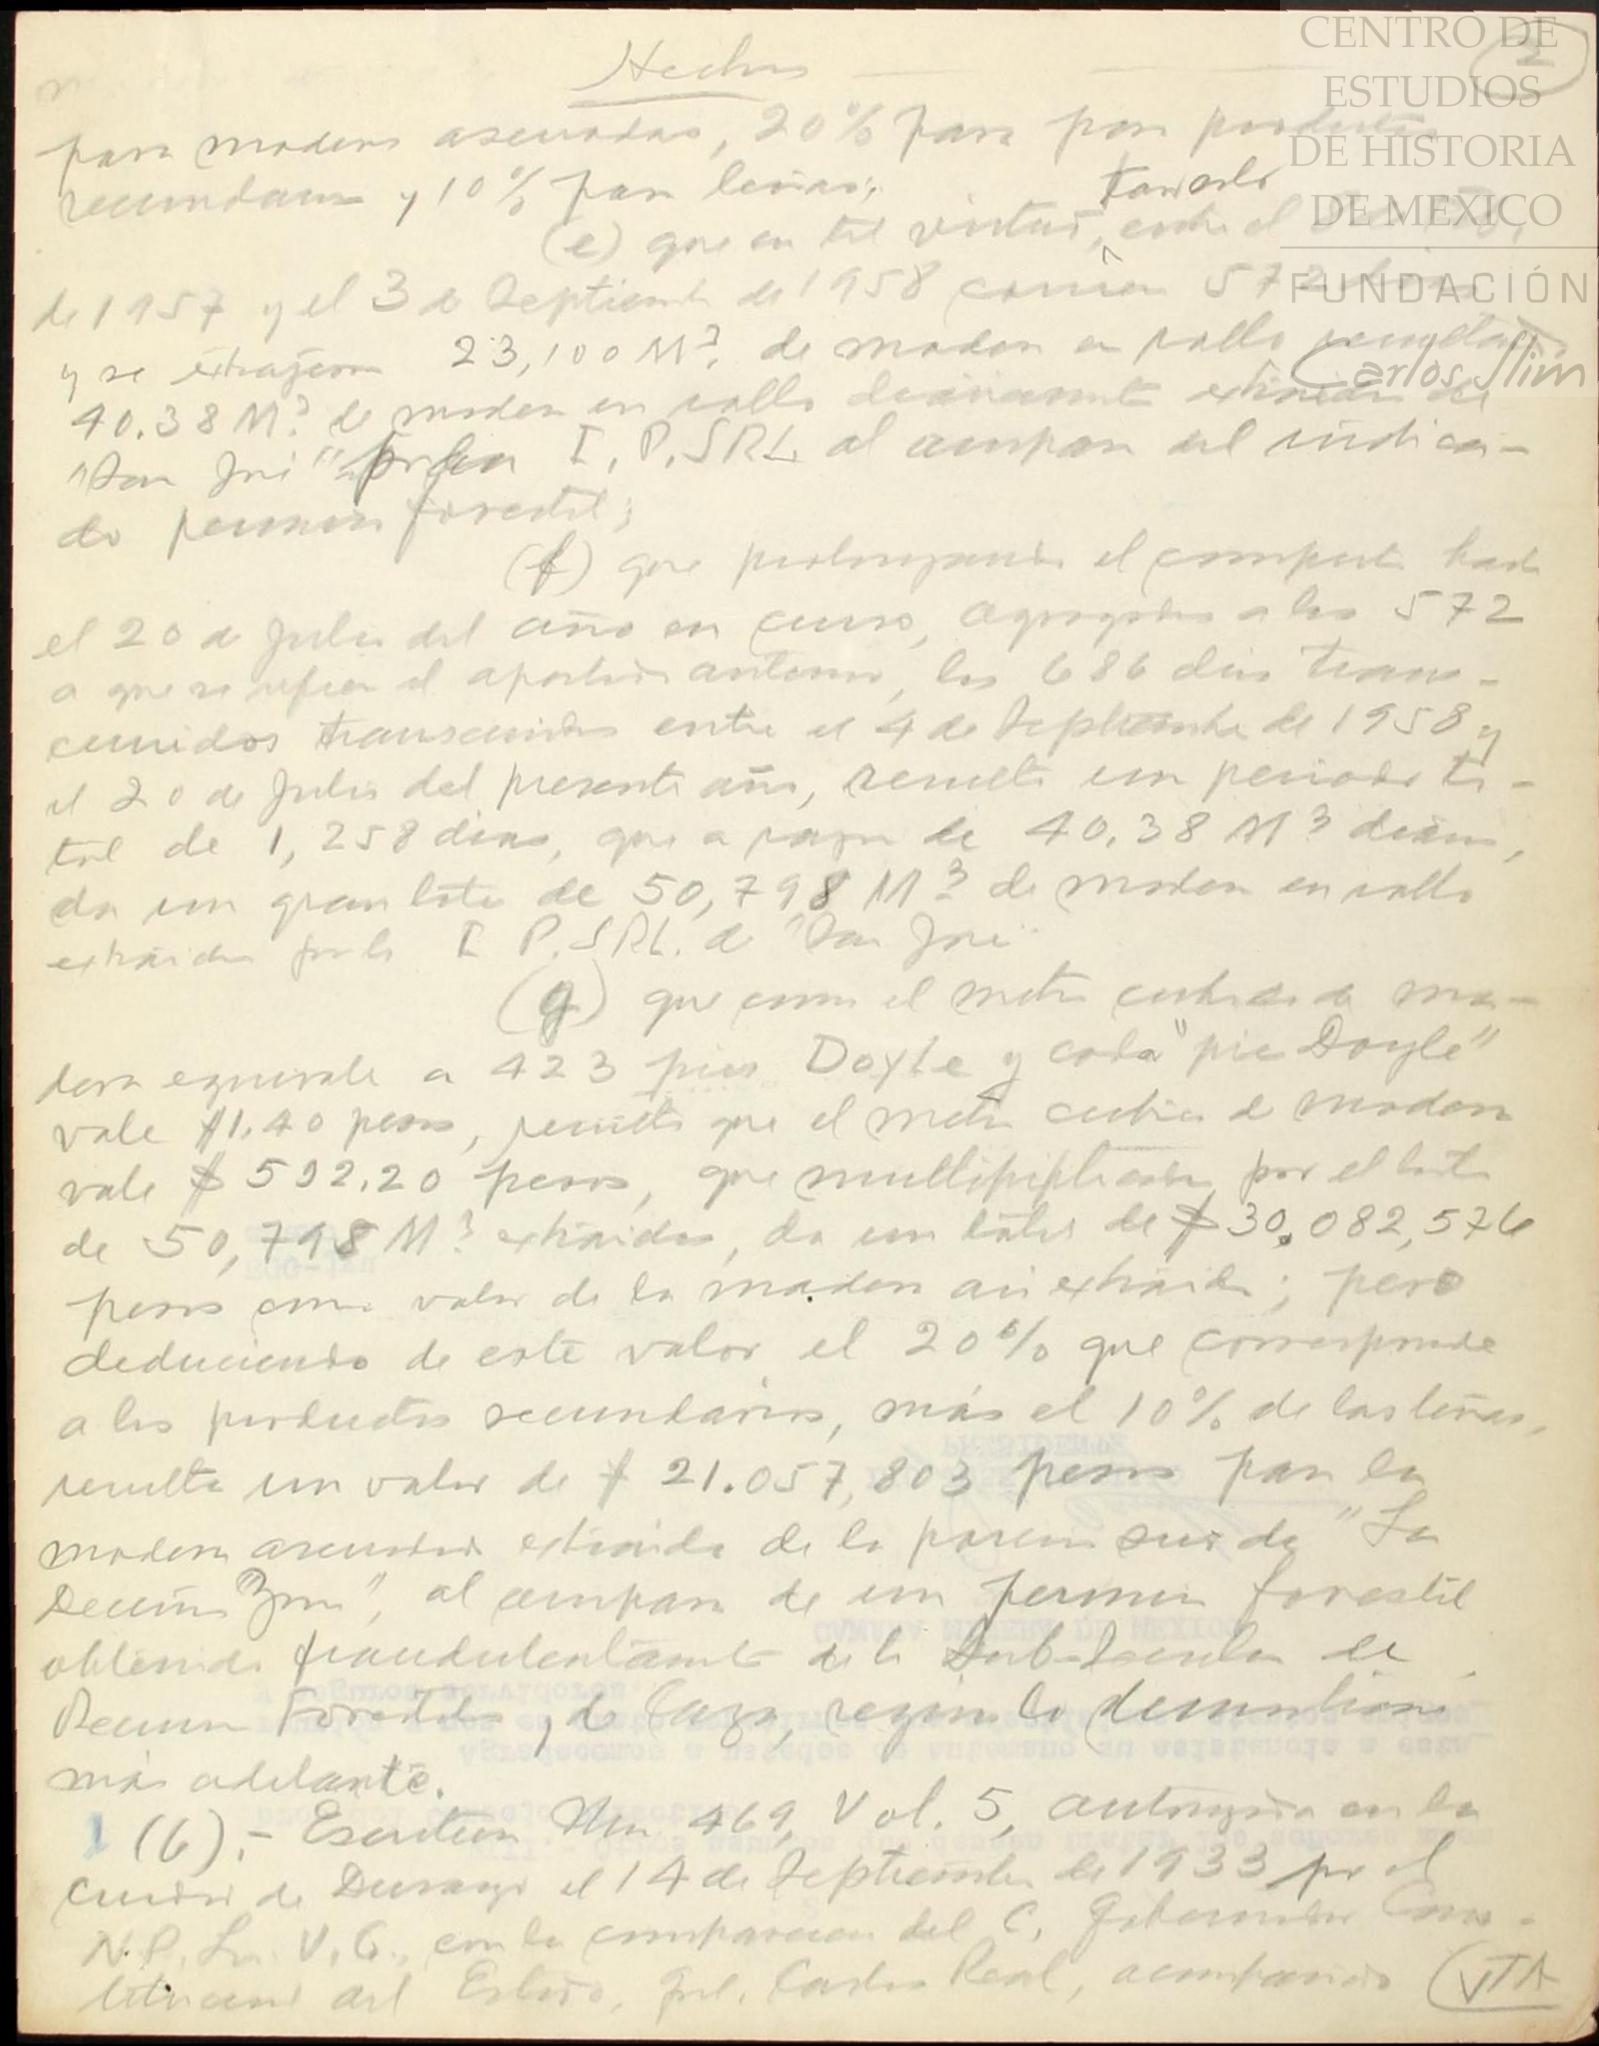 Hechos
2
CENTRO DE
ESTUDIOS
DE HISTORIA
DE MEXICO
FUNDACIÓN
Carlos Slim
para madera aserradas, 20% para para productos
secundarios y 10% para leñas;
(e) que en tal virtud, tomando entre el
de 1957 y el 3 de Septiembre de 1958 corrieron 572 días
y se extrajeron 23,100 M3. de madera en rollo resultan
40.38 M3. de madera en rollo diariamente extraídos de
"San José" por la I. P. SRL. al amparo del indica-
do permiso forestal;
(f) que prolongando el computo hasta
el 20 de Julio del año en curso, agregados a los 572
a que se refiere el apartado anterior, los 686 días trans-
curridos transcurridos entre el 4 de Septiembre de 1958 y
el 20 de Julio del presente año, resulta un periodo to-
tal de 1,258 días, que a razon de 40.38 M3 diarios,
da un gran lote de 50,798 M3 de madera en rollo
extraidos por la I. P. SRL. de "San José"
(g) que como el metro cubico de ma-
dera equivale a 423 pies Doyle y cada "pie Doyle"
vale $1.40 pesos, resulta que el metro cubico de madera
vale $592.20 pesos, que multiplicado por el lote
de 50,798 M3. extraidos, da un total de $30.082,576
pesos como valor de la madera asi extraida; pero
deduciendo de este valor el 20% que corresponde
a los productos secundarios, más el 10% de las leñas,
resulta un valor de $21.057,803 pesos para la
madera aserrada extraida de la porcion sur de "La
Decima Zona", al amparo de un permiso forestal
obtenido fraudulentamente de la Sub-Secretaria de
Recursos Forestales y de Caza, según lo demuestro
más adelante.
1 (6).- Escritura Num 469, Vol. 5, autorizada en la
ciudad de Durango el 14 de Septiembre de 1933 por el
N.P. Lic. V. G., con la comparecencia del C. Gobernador Cons-
titucional del Estado, Gral. Carlos Real, acompañado
VTA